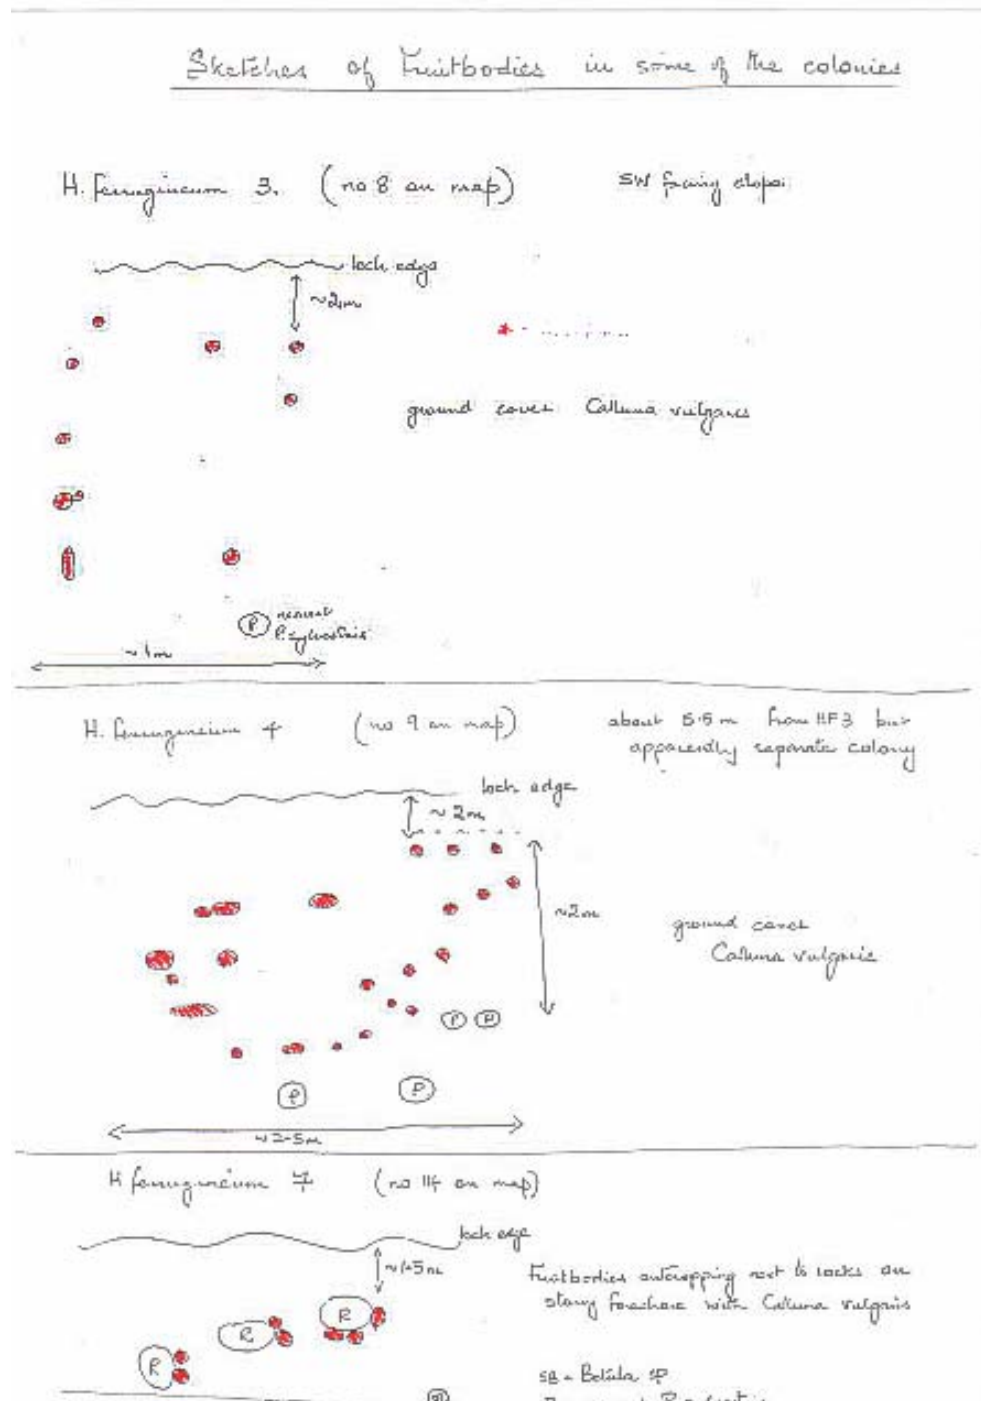 Sketches of Fruitbodies in some of the colonies
H. ferrugineum 3. (no 8 on map) SW facing slope
loch edge
~2m
ground cover Calluna vulgaris
P nearest
P. sylvestris
~1m
H. ferrugineum 4 (no 9 on map) about 5.5 m from HF3 but
apparently separate colony
loch edge
~2m
~2m
ground cover
Calluna vulgaris
P P
P P
~2.5m
H ferrugineum 7 (no 14 on map)
loch edge
~1.5m
Fruitbodies outcropping next to rocks on
stony foreshore with Calluna vulgaris
R R R
SB = Betula sp